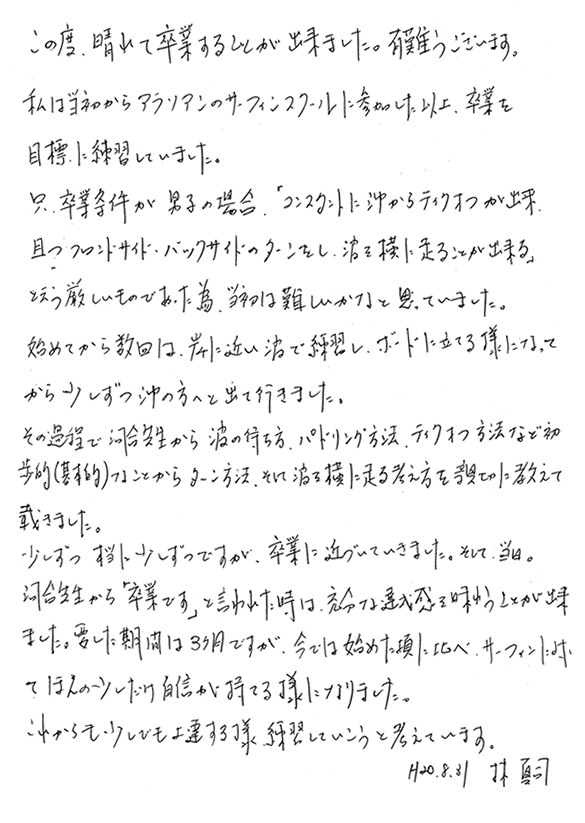 この度、晴れて卒業することが出来ました。有難うございます。
私は当初からアラソアンのサーフィンスクールに参加した以上、卒業を
目標に練習していました。
只、卒業条件が男子の場合、「コンスタントに沖からテイクオフが出来、
且つフロントサイド・バックサイドのターンをし、波を横に走ることが出来る」
と云う厳しいものであった為、当初は難しいかなと思っていました。
始めてから数回は、岸に近い波で練習し、ボードに立てる様になって
から少しずつ沖の方へと出て行きました。
その過程で河合先生から波の待ち方、パドリング方法、テイクオフ方法など初
歩的(基本的)なことからターン方法、そして波を横に走る考え方を親切に教えて
戴きました。
少しずつ本当に少しずつですが、卒業に近づいていきました。そして、当日。
河合先生から「卒業です」と言われた時は、充分な達成感を味わうことが出来
ました。要した期間は3ヶ月ですが、今では始めた頃に比べ、サーフィンに対し
てほんの少しだけ自信が持てる様になりました。
これからも少しでも上達する様、練習していこうと考えています。
H20.8.31 林 真司